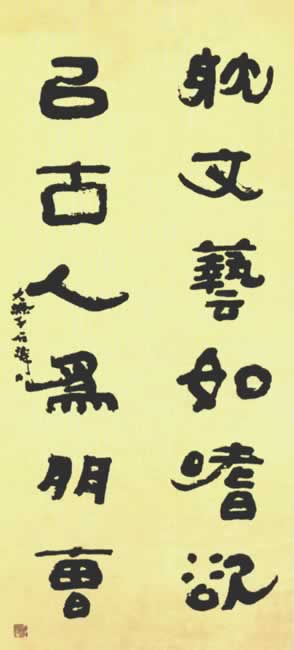 躭文藝如嗜欲
㠯古人爲朋曹